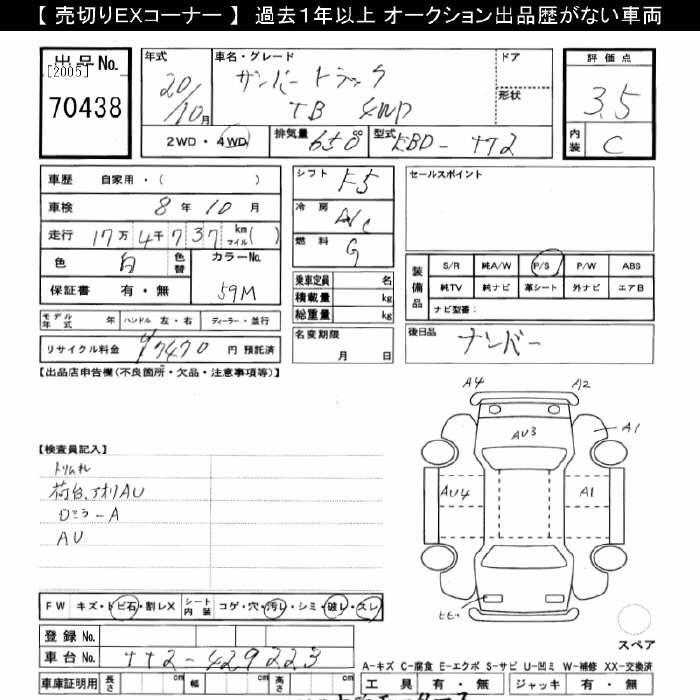 【 売切りEXコーナー 】 過去1年以上 オークション出品歴がない車両
出品No.
[2005]
70438
年式
20/10月
車名・グレード
サンバートラック
TB 4WD
ドア
形状
評価点
3.5
内装
C
2WD・4WD
排気量
650cc
型式
EBD-TT2
車歴 自家用・( )
車検 8年10月
走行 17万4千737km マイル( )
色 白 色替 カラーNo.
59M
保証書 有・無
シフト
F5
冷房
A/C
燃料
G
乗車定員 名
積載量 kg
総重量 kg
セールスポイント
装備品
S/R 純A/W P/S P/W ABS
純TV 純ナビ 革シート 外ナビ エアB
ナビ型番：
モデル年式 年 ハンドル 左・右 ディーラー・並行
リサイクル料金 ¥7470 円預託済
名変期限
月 日
後日品
ナンバー
【出品店申告欄(不良箇所・欠品・注意事項等)】
A4 A2
A1
AU3
AU4 A1
【検査員記入】
トリムれ
荷台、アオリAU
Dミラ-A
AU
FW キズ・トビ石・割レX シート内装 コゲ・穴・汚レ・シミ・破レ・スレ
登録No.
車台No. TT2-429223
スペア
A-キズ C-腐食 E-エクボ S-サビ U-凹ミ W-補修 XX-交換済
車庫証明用 長さ cm 幅 cm 高さ cm
工具 有・無 ジャッキ 有・無